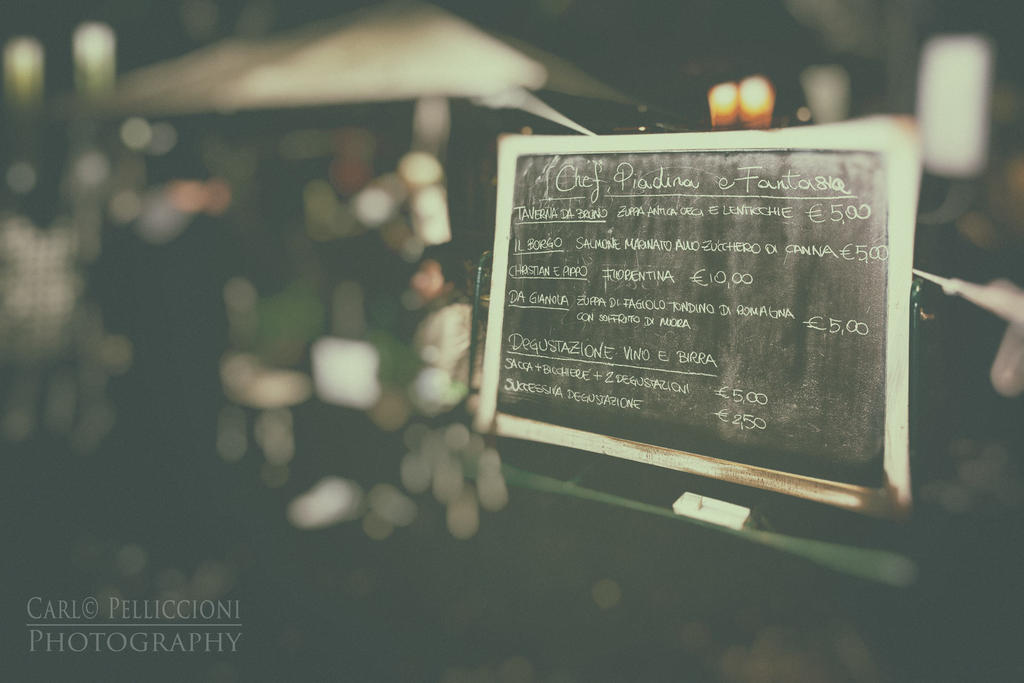 1 Chef, Piadina e Fantasia
TAVERNA DA BRUNO ZUPPA ANTICA CECI E LENTICCHIE € 5,00
IL BORGO SALMONE MARINATO ALLO ZUCCHERO DI CANNA € 5,00
CHRISTIAN E PIPPO FIORENTINA € 10,00
DA GIANOLA ZUPPA DI FAGIOLO TONDINO DI ROMAGNA
CON SOFFRITO DI MORA € 5,00
DEGUSTAZIONE VINO E BIRRA
SACCA + BICCHIERE + 2 DEGUSTAZIONI € 5,00
SUCCESSIVA DEGUSTAZIONE € 2,50
CARL© PELLICCIONI
PHOTOGRAPHY